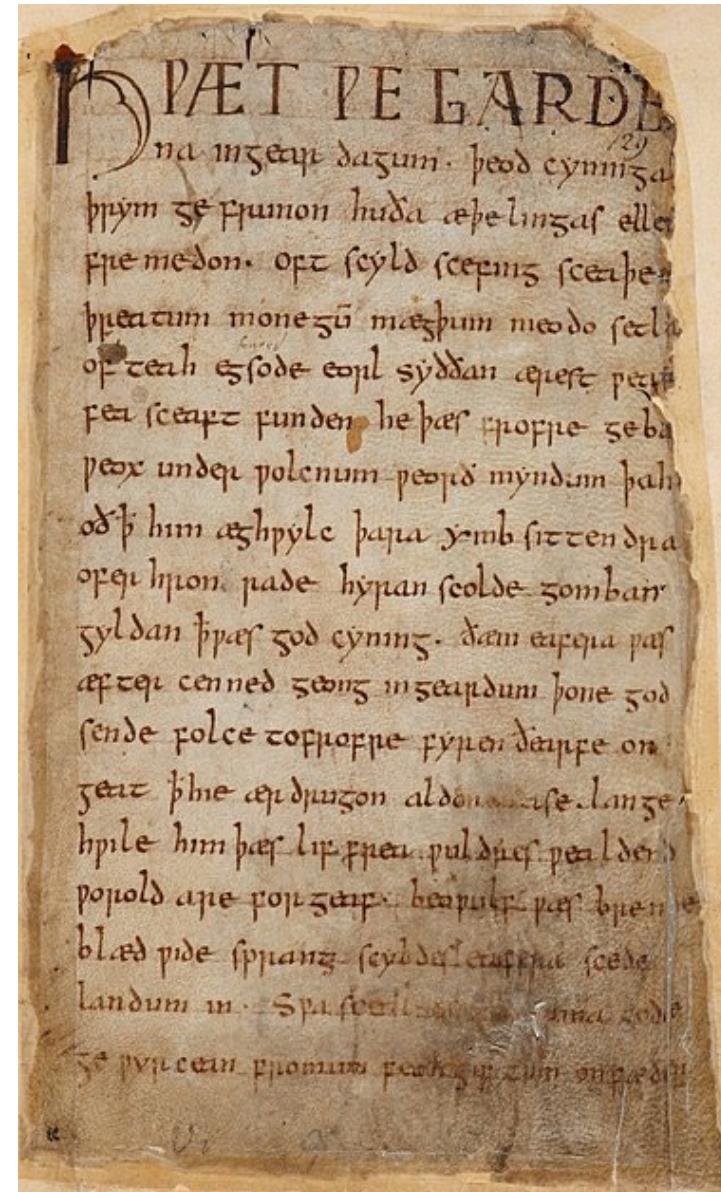 HǷÆT ǷE GARDE
na ingear dagum. þeod cyninga
þrym ge frunon huða æþelingas elle
fremedon. oft scyld scefing sceaþe
þreatum monegū mægþum meodo setla
of teah egsode eorl syððan ærest ƿear
fea sceaft funden he þæs frofre geba
ƿeox under ƿolcnum ƿeorð myndum þah
oð ꝥ him æghƿylc þara ymb sittendra
ofer hron rade hyran scolde gomban
gyldan ꝥ ƿæs god cyning. ðæm eafera ƿæs
æfter cenned geong ingeardum þone god
sende folce tofrofre fyren ðearfe on
geat ꝥ hie ær drugon aldor ase. lange
hƿile him þæs lif frea ƿuldres ƿealdend
ƿorold are for geaf. beoƿulf ƿæs breme
blæd ƿide sprang scyldes eafera scede
landum in. Sƿa sceal gode
ge ƿyrcean fromum feoh giftum on fæder
129